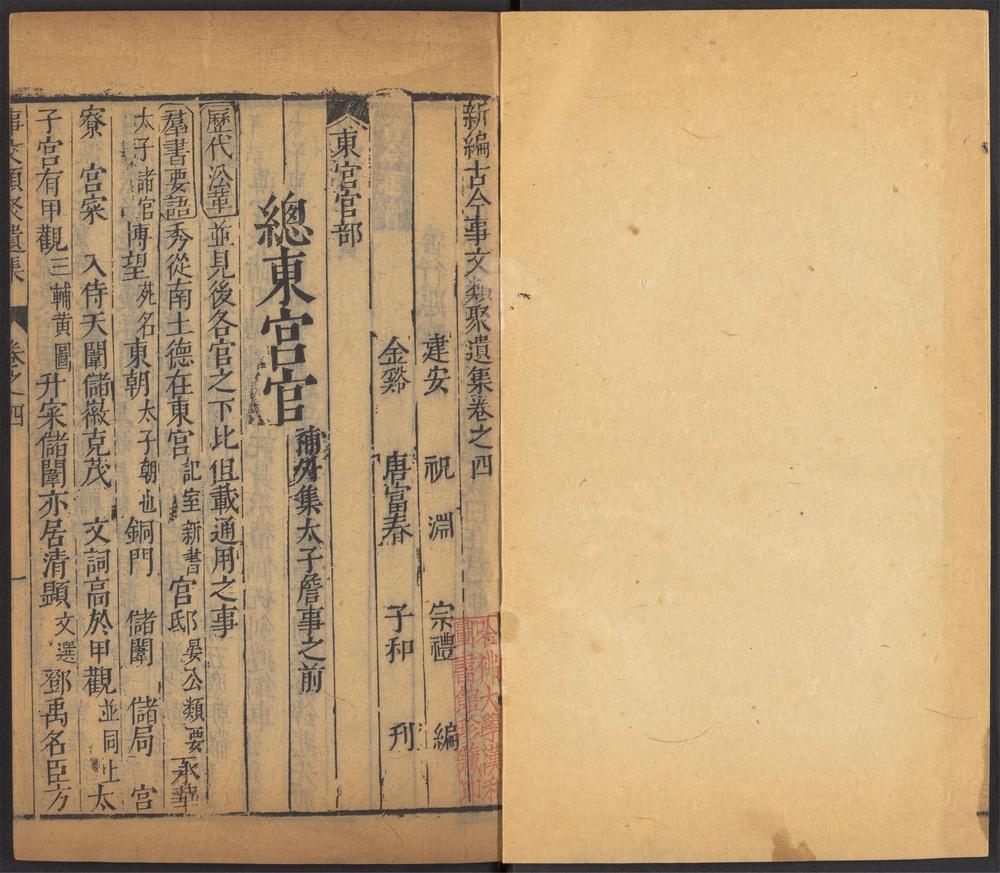 新編古今事文類聚遺集卷之四
建安 祝 淵 宗禮 編
金谿 唐富春 子和 刊
東宮官部
總東宮官 補外集太子詹事之前
歷代㳂革並見後各官之下比但載通用之事
羣書要語秀從南土德在東宮記室新書官邸晏公類要承華
太子諸宮博望苑名東朝太子朝也銅門 儲闈 儲局 宮
寮 宮寀 入侍天闈儲徽克茂 文詞高於甲觀並同上太
子宮有甲觀三輔黃圖升寀儲闈亦居清顯文選鄧禹名臣方
事文類聚遺集 卷之四 一
哈佛大學漢和
圖書館珍藏印